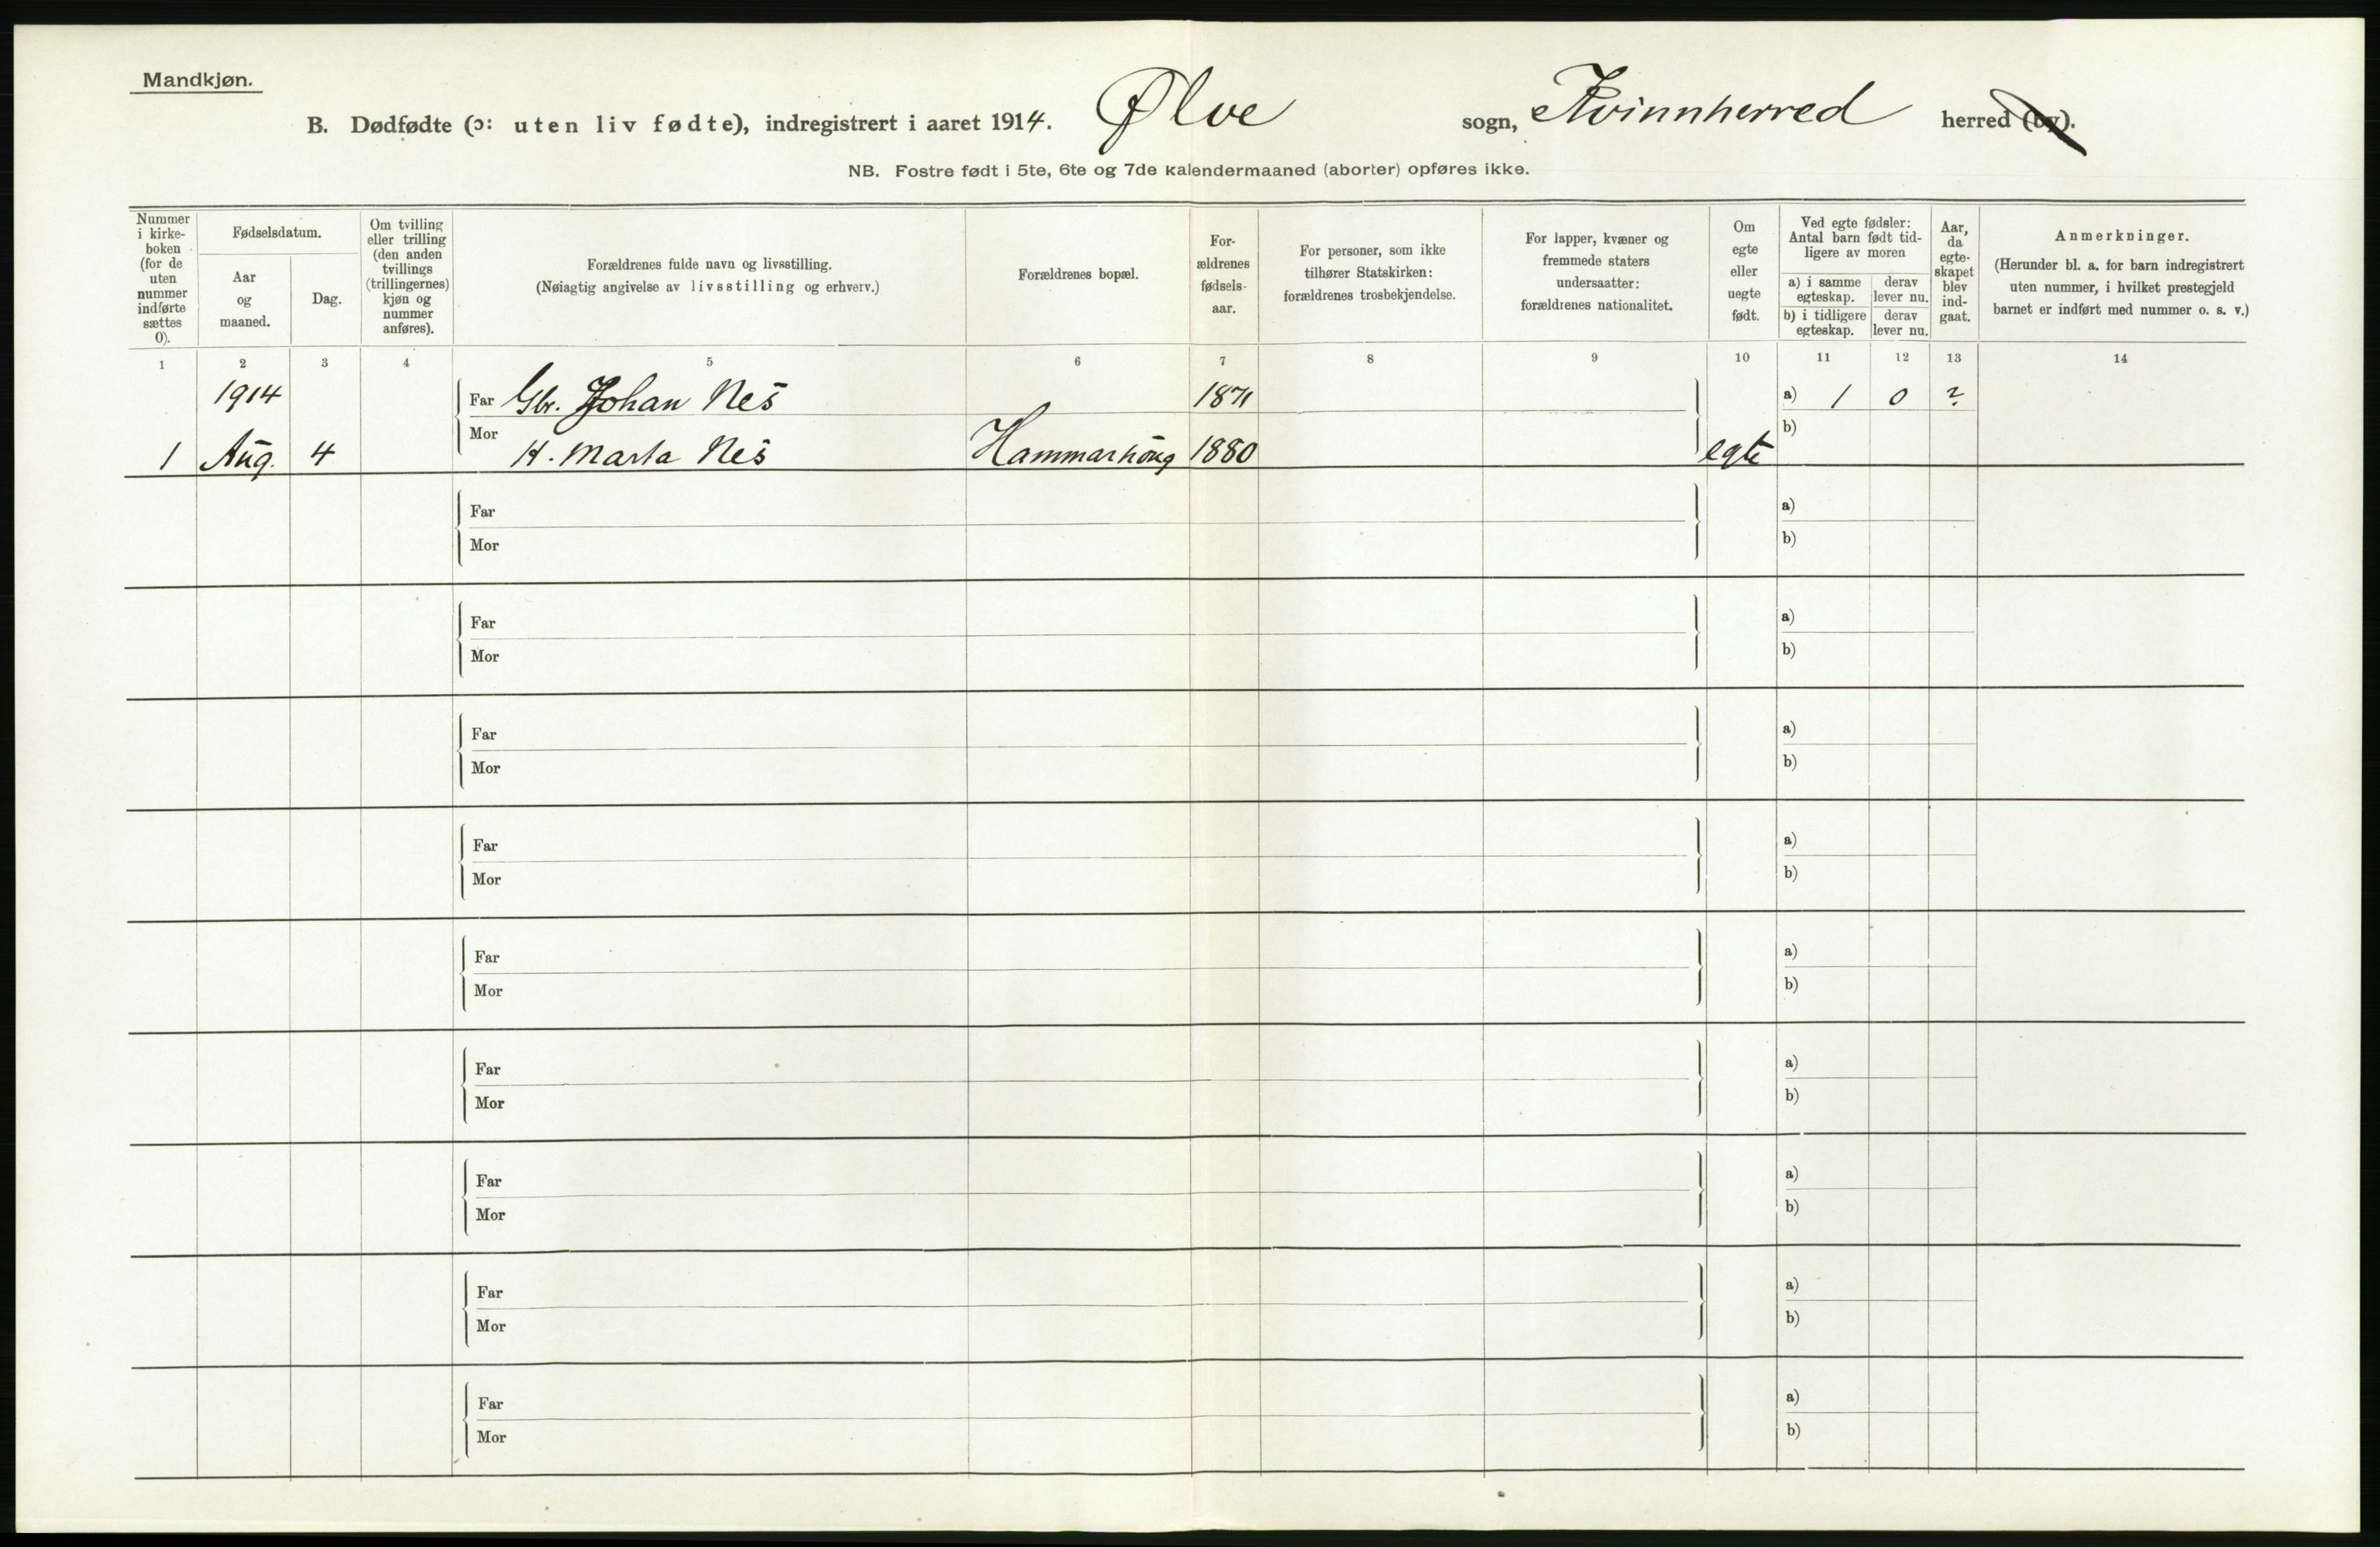 Mandkjøn.
B. Dødfødte (ɔ: uten liv fødte), indregistrert i aaret 1914. Ølve sogn, Kvinnherred herred (by).
NB. Fostre født i 5te, 6te og 7de kalendermaaned (aborter) opføres ikke.
Nummer i kirke-boken (for de uten nummer indførte sættes 0).
Fødselsdatum.
Aar og maaned.
Dag.
Om tvilling eller trilling (den anden tvillings (trillingernes) kjøn og nummer anføres).
Forældrenes fulde navn og livsstilling.
(Nøiagtig angivelse av livsstilling og erhverv.)
Forældrenes bopæl.
For-ældrenes fødsels-aar.
For personer, som ikke tilhører Statskirken: forældrenes trosbekjendelse.
For lapper, kvæner og fremmede staters undersaatter: forældrenes nationalitet.
Om egte eller uegte født.
Ved egte fødsler: Antal barn født tid-ligere av moren
a) i samme egteskap.
derav lever nu.
b) i tidligere egteskap.
derav lever nu.
Aar, da egte-skapet blev ind-gaat.
Anmerkninger.
(Herunder bl. a. for barn indregistrert uten nummer, i hvilket prestegjeld barnet er indført med nummer o. s. v.)
1 2 3 4 5 6 7 8 9 10 11 12 13 14
1914 Far Gbr. Johan Nes 1871 a) 1 0 ?
1 Aug. 4 Mor H. Marta Nes Hammarhaug 1880 egte b)
Far a)
Mor b)
Far a)
Mor b)
Far a)
Mor b)
Far a)
Mor b)
Far a)
Mor b)
Far a)
Mor b)
Far a)
Mor b)
Far a)
Mor b)
Far a)
Mor b)